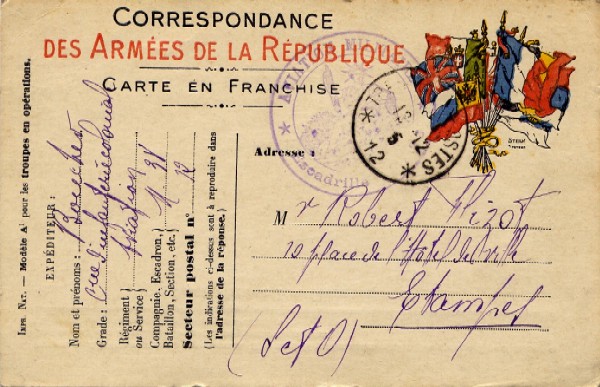 CORRESPONDANCE
DES ARMÉES DE LA RÉPUBLIQUE
CARTE EN FRANCHISE
IMPR. NAT. — Modèle A' pour les troupes en opérations.
EXPÉDITEUR :
Nom et prénoms :
Grade : d'infanterie coloniale
Régiment
ou Service) Aviation
Compagnie, Escadron,
Bataillon, Section, etc.
Secteur postal n° 12
(Les indications ci-dessus sont à reproduire dans
l'adresse de la réponse.)
AVIATION
Escadrille
POSTES
12
5
12
Adresse :
Mr Robert
10 place de l'Hôtel de Ville
Etampes
(S et O)